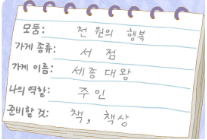 모둠: 천 원의 행복
가게 종류: 서점
가게 이름: 세종 대왕
나의 역할: 주인
준비할 것: 책, 책상